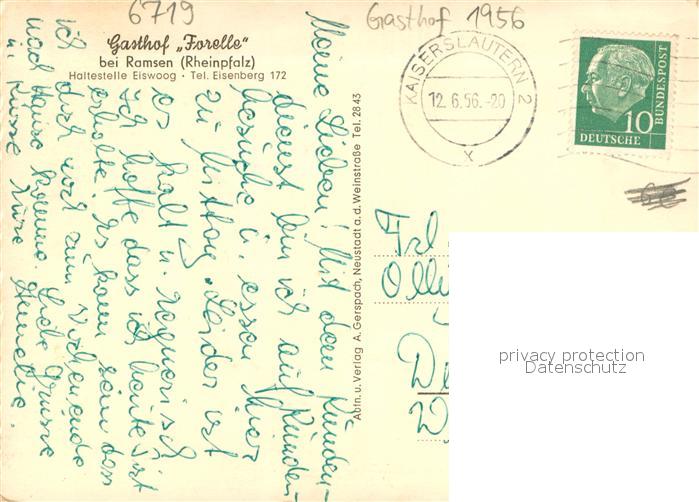 6719
Gasthof 1956
Gasthof „Forelle“
bei Ramsen (Rheinpfalz)
Haltestelle Eiswoog · Tel. Eisenberg 172
KAISERSLAUTERN 2
12.6.56.-20
x
10
DEUTSCHE
BUNDESPOST
Meine Lieben! Mit dem Kunden-
dienst bin ich auf Kunden-
besuche u. essen hier
zu Mittag. Leider ist
es kalt u. regnerisch
ich hoffe dass ich heute
erhalte. Es kann sein dass
ich doch noch zum Wochenende
nach Hause komme. Liebe Grüsse
u. Küsse
Abtn. u. Verlag A. Gerspach, Neustadt a. d. Weinstraße Tel. 2843
Frl
privacy protection
Datenschutz